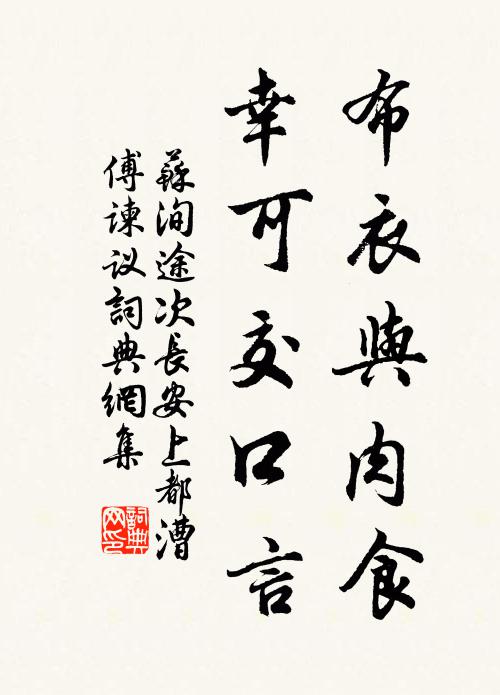 布衣與肉食
幸可交口言
蘇洵途次長安上都漕
傅諫议詞典網集
詞典网印